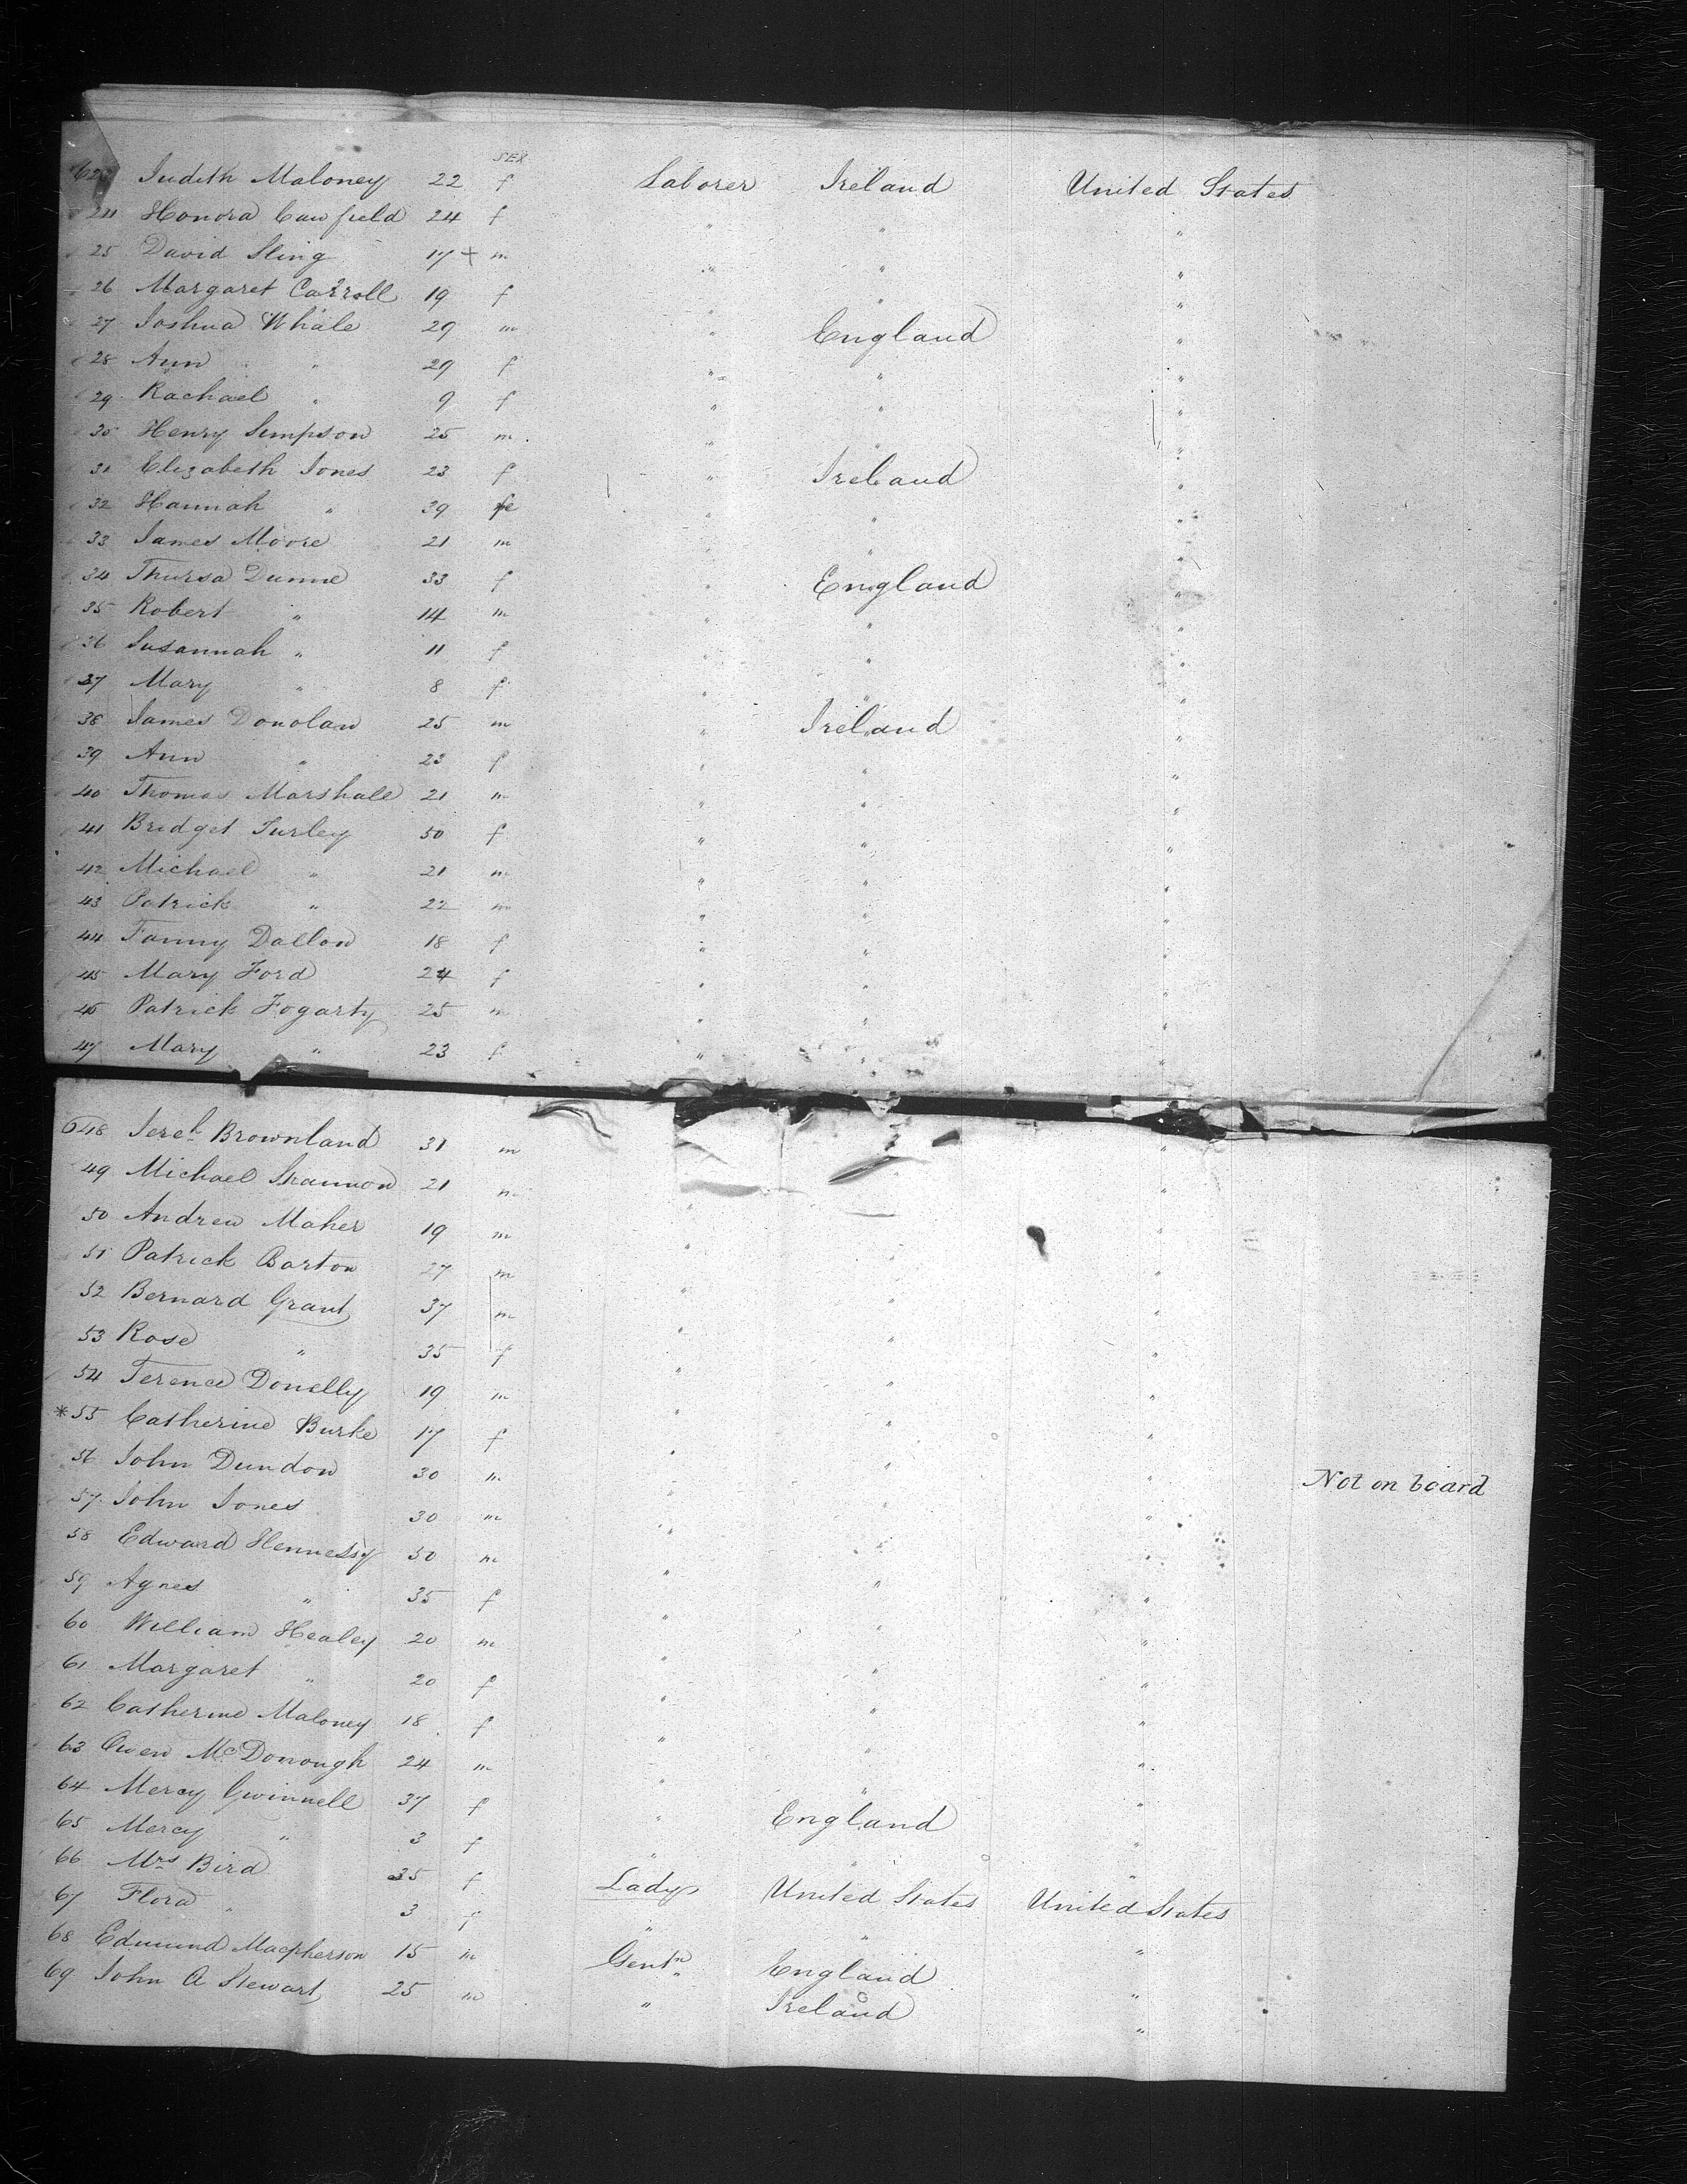 SEX
623 Judith Maloney 22 f Laborer Ireland United States
24 Honora Cawfield 24 f " " "
25 David Sling 17 + m " " "
26 Margaret Carroll 19 f " " "
27 Joshua Whale 29 m " England "
28 Ann " 29 f " " "
29 Rachael " 9 f " " "
30 Henry Simpson 25 m " " "
31 Elizabeth Jones 23 f " Ireland "
32 Hannah " 39 f " " "
33 James Moore 21 m " " "
34 Thursa Dunne 33 f " England "
35 Robert " 14 m " " "
36 Susannah " 11 f " " "
37 Mary " 8 f " " "
38 James Donolan 25 m " Ireland "
39 Ann " 23 f " " "
40 Thomas Marshall 21 m " " "
41 Bridget Turley 50 f " " "
42 Michael " 21 m " " "
43 Patrick " 22 m " " "
44 Fanny Dallon 18 f " " "
45 Mary Ford 24 f " " "
46 Patrick Fogarty 25 m " " "
47 Mary " 23 f " " "
648 Jereh Brownland 31 m "
49 Michael Shannon 21 m " " "
50 Andrew Maher 19 m " " "
51 Patrick Barton 27 m " " "
52 Bernard Grant 37 m " " "
53 Rose " 35 f " " "
54 Terence Donelly 19 m " " "
*55 Catherine Burke 17 f " " "
56 John Dundon 30 m " " " Not on board
57 John Jones 30 m " " "
58 Edward Hennessy 50 m " " "
59 Agnes " 35 f " " "
60 William Healey 20 m " " "
61 Margaret " 20 f " " "
62 Catherine Maloney 18 f " " "
63 Owen McDonough 24 m " " "
64 Mercy Gwinnell 37 f " England "
65 Mercy " 3 f " " "
66 Mrs Bird 35 f Lady United States United States
67 Flora " 3 f " " "
68 Edmund Macpherson 15 m Gentn England "
69 John A Stewart 25 m " Ireland "